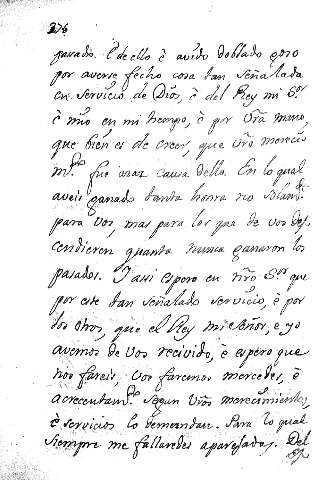 276
pasado. E de ello è avido doblado gozo
por averse fecho cosa tan señalada
en servicio de Dios, è del Rey mi S.or
è mio en mi tiempo, è por vr̃a mano,
que bien es de creer, que vr̃o mereci
m.to fue gran causa dello. En lo qual
aveis ganado tanta honra no solam.te
para vos, mas para los que de vos des
cendieren quanta nunca ganaron los
pasados. I assi espero en nr̃o S.or que
por este tan señalado servicio, è por
los otros, que el Rey mi señor, e yo
avemos de vos recivido, è espero que
nos fareis, vos faremos mercedes, è
acrecentam.to segun vr̃os merecimientos,
è servicios lo demandan. Para lo qual
siempre me fallaredes aparejada. Del